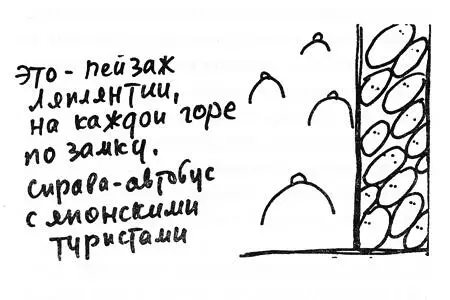 это - пейзаж
Ляплянтии,
на каждой горе
по замку.
справа-автобус
с японскими
туристами